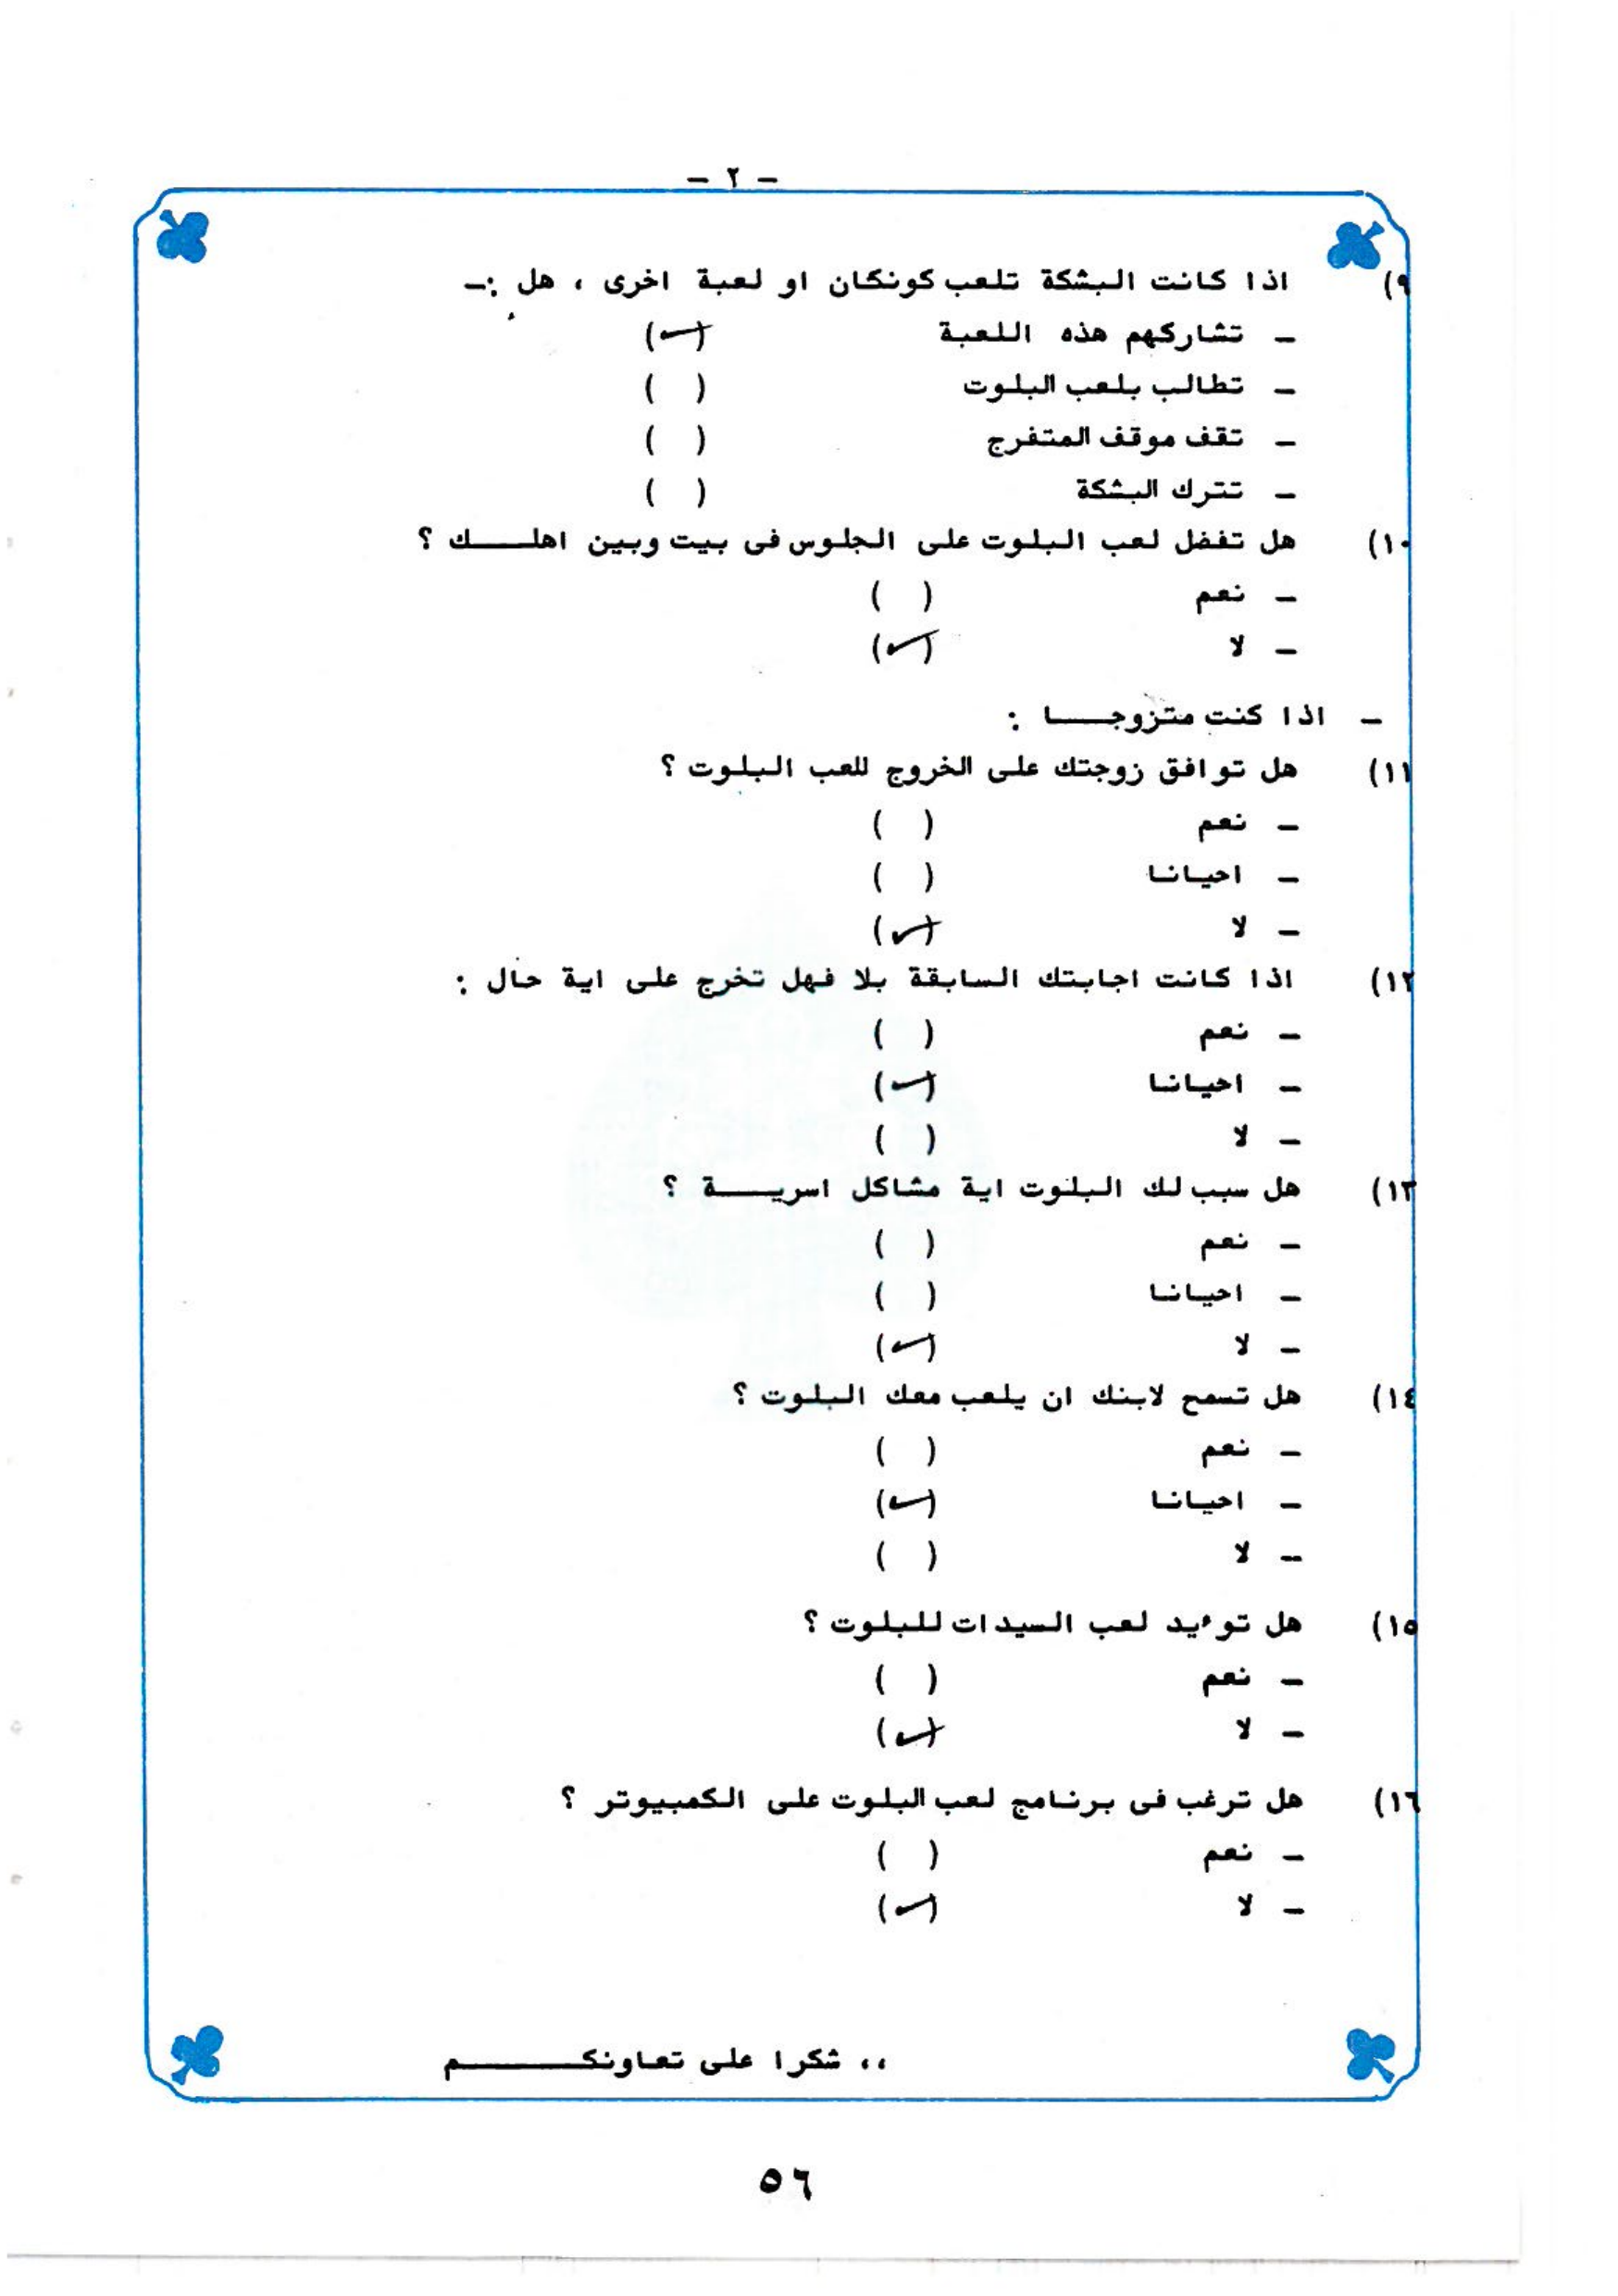 - ٢ -
٩) اذا كانت البشكة تلعب كونكان او لعبة اخرى ، هل :-
- تشاركهم هذه اللعبة (✓)
- تطالب بلعب البلوت ( )
- تقف موقف المتفرج ( )
- تترك البشكة ( )
١٠) هل تفضل لعب البلوت على الجلوس فى بيت وبين اهلـــك ؟
- نعم ( )
- لا (✓)
- اذا كنت متزوجـــا :
١١) هل توافق زوجتك على الخروج للعب البلوت ؟
- نعم ( )
- احيانا ( )
- لا (✓)
١٢) اذا كانت اجابتك السابقة بلا فهل تخرج على اية حال :
- نعم ( )
- احيانا (✓)
- لا ( )
١٣) هل سبب لك البلوت اية مشاكل اسريـــة ؟
- نعم ( )
- احيانا ( )
- لا (✓)
١٤) هل تسمح لابنك ان يلعب معك البلوت ؟
- نعم ( )
- احيانا (✓)
- لا ( )
١٥) هل توءيد لعب السيدات للبلوت ؟
- نعم ( )
- لا (✓)
١٦) هل ترغب فى برنامج لعب البلوت على الكمبيوتر ؟
- نعم ( )
- لا (✓)
،، شكرا على تعاونكــــــم
٥٦